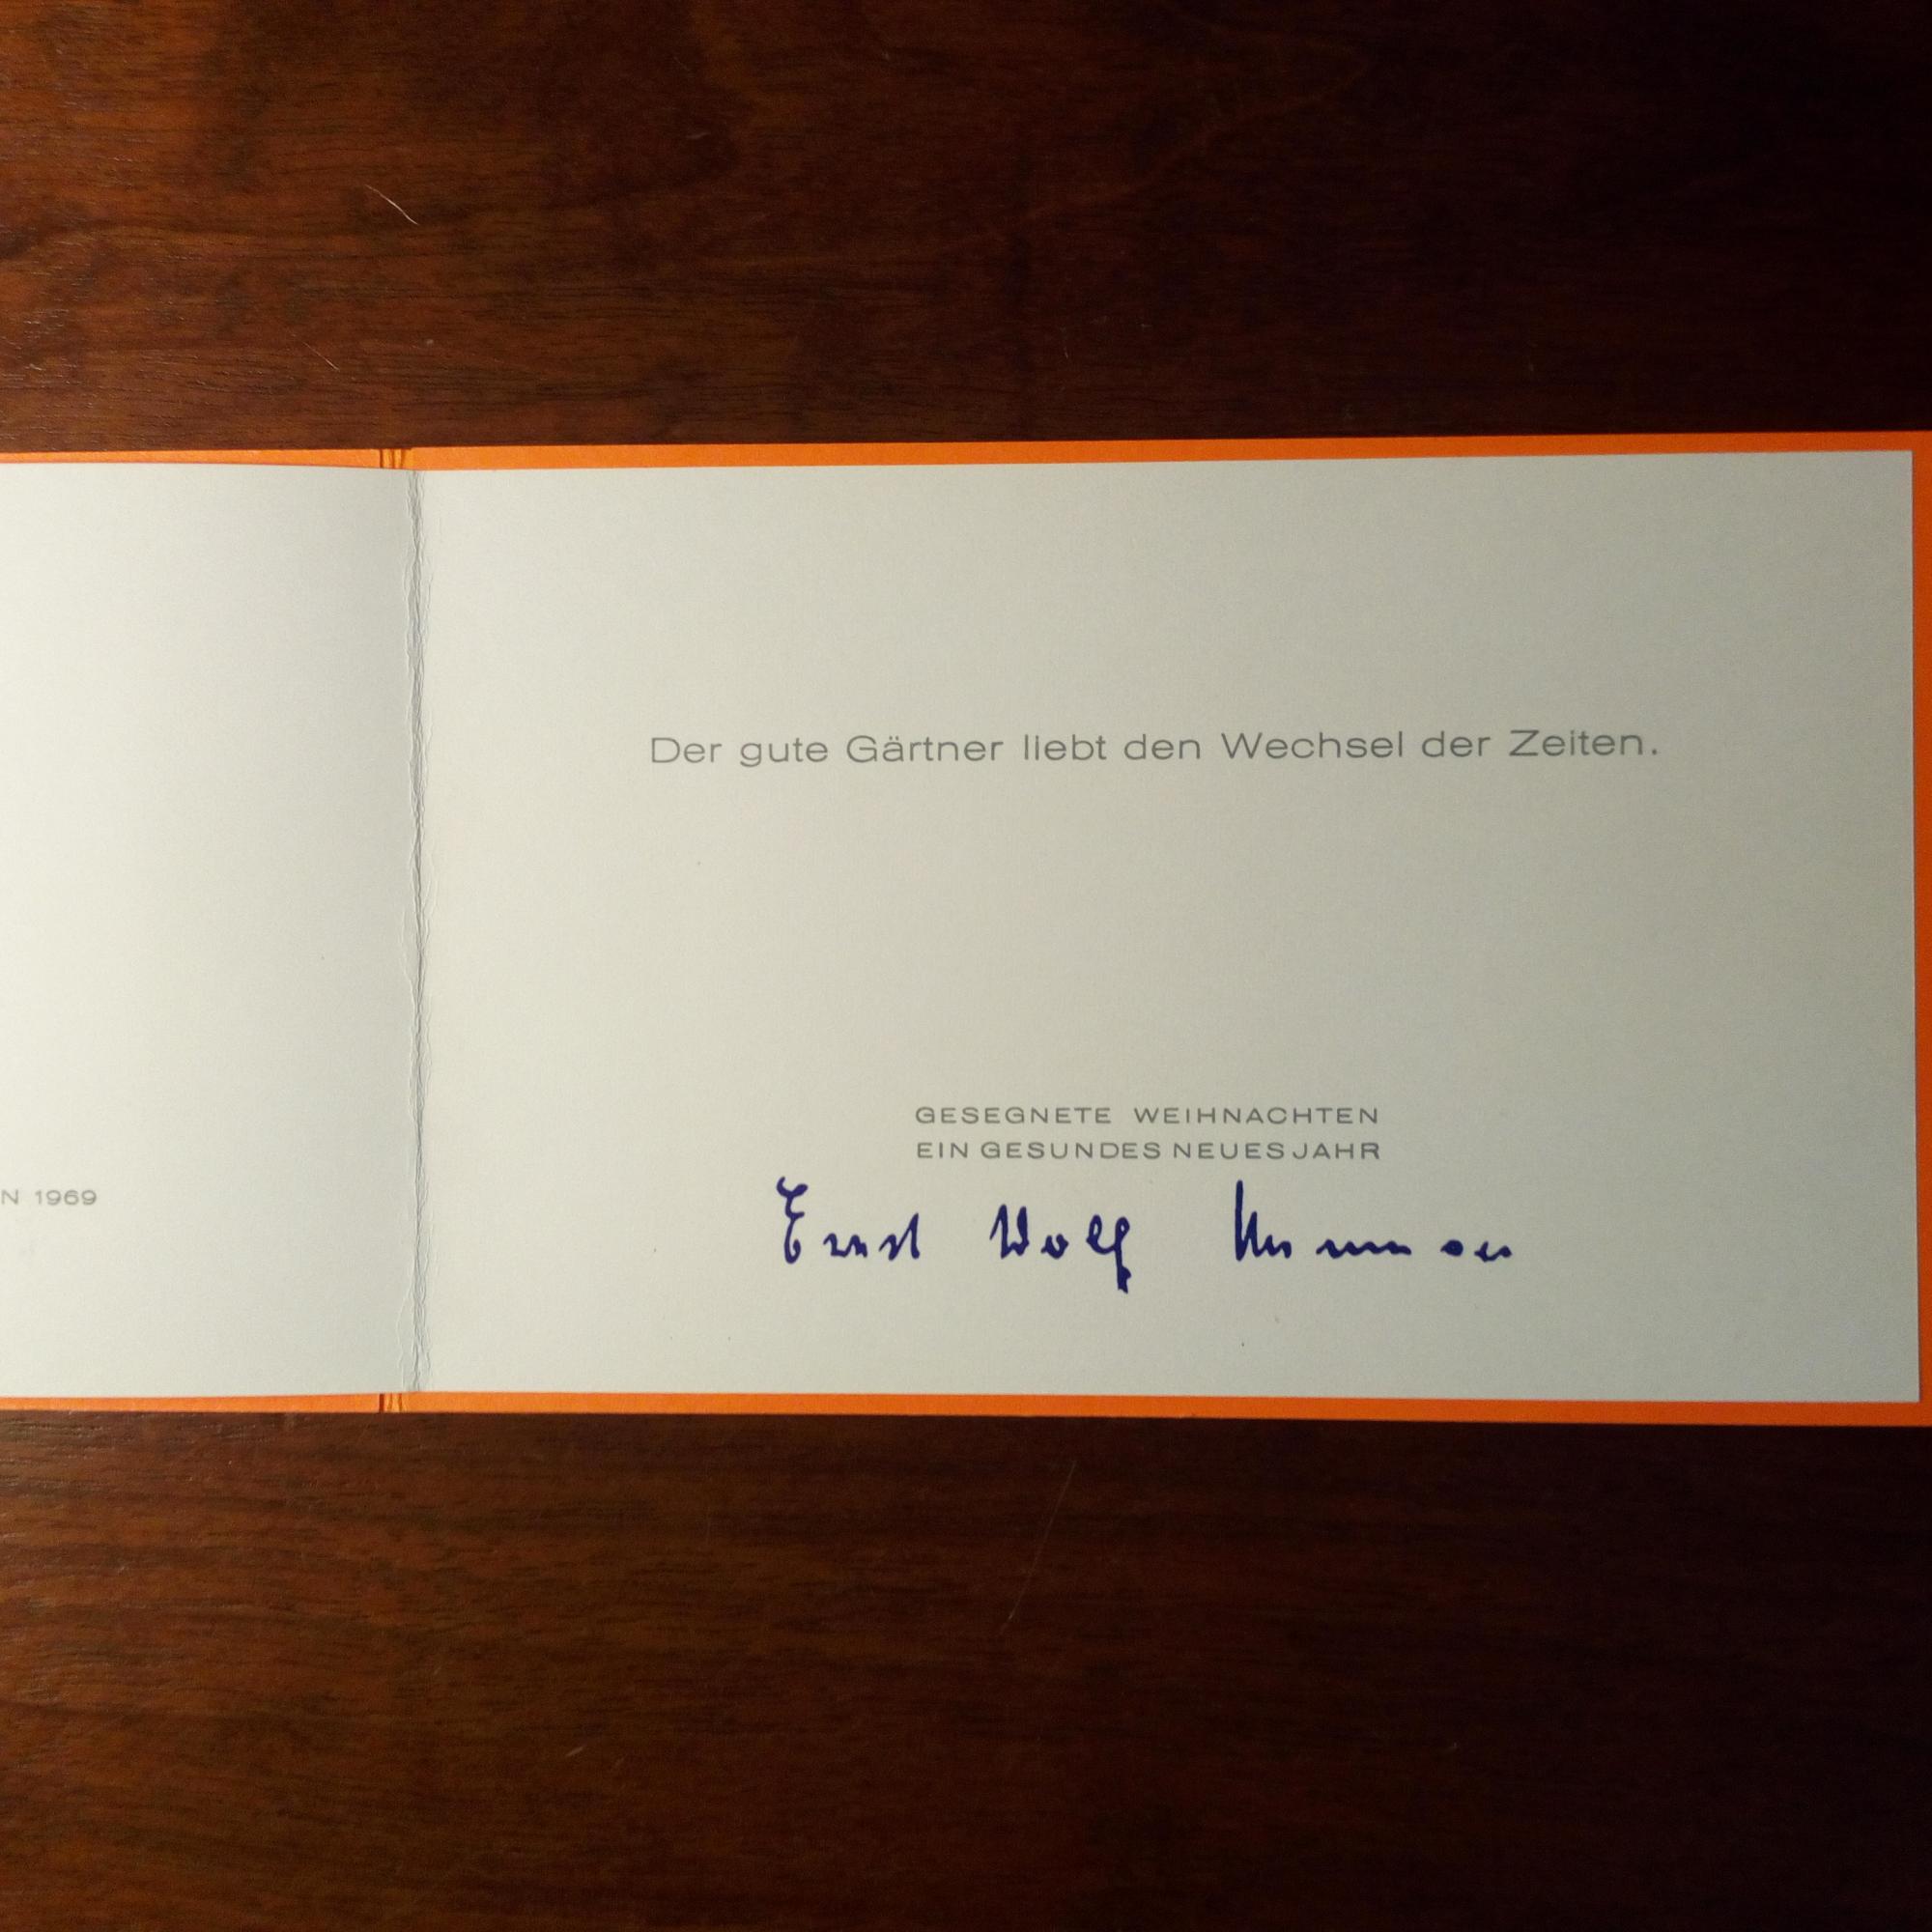 N 1969
Der gute Gärtner liebt den Wechsel der Zeiten.
GESEGNETE WEIHNACHTEN
EIN GESUNDES NEUES JAHR
Ernst Wolf Mommsen